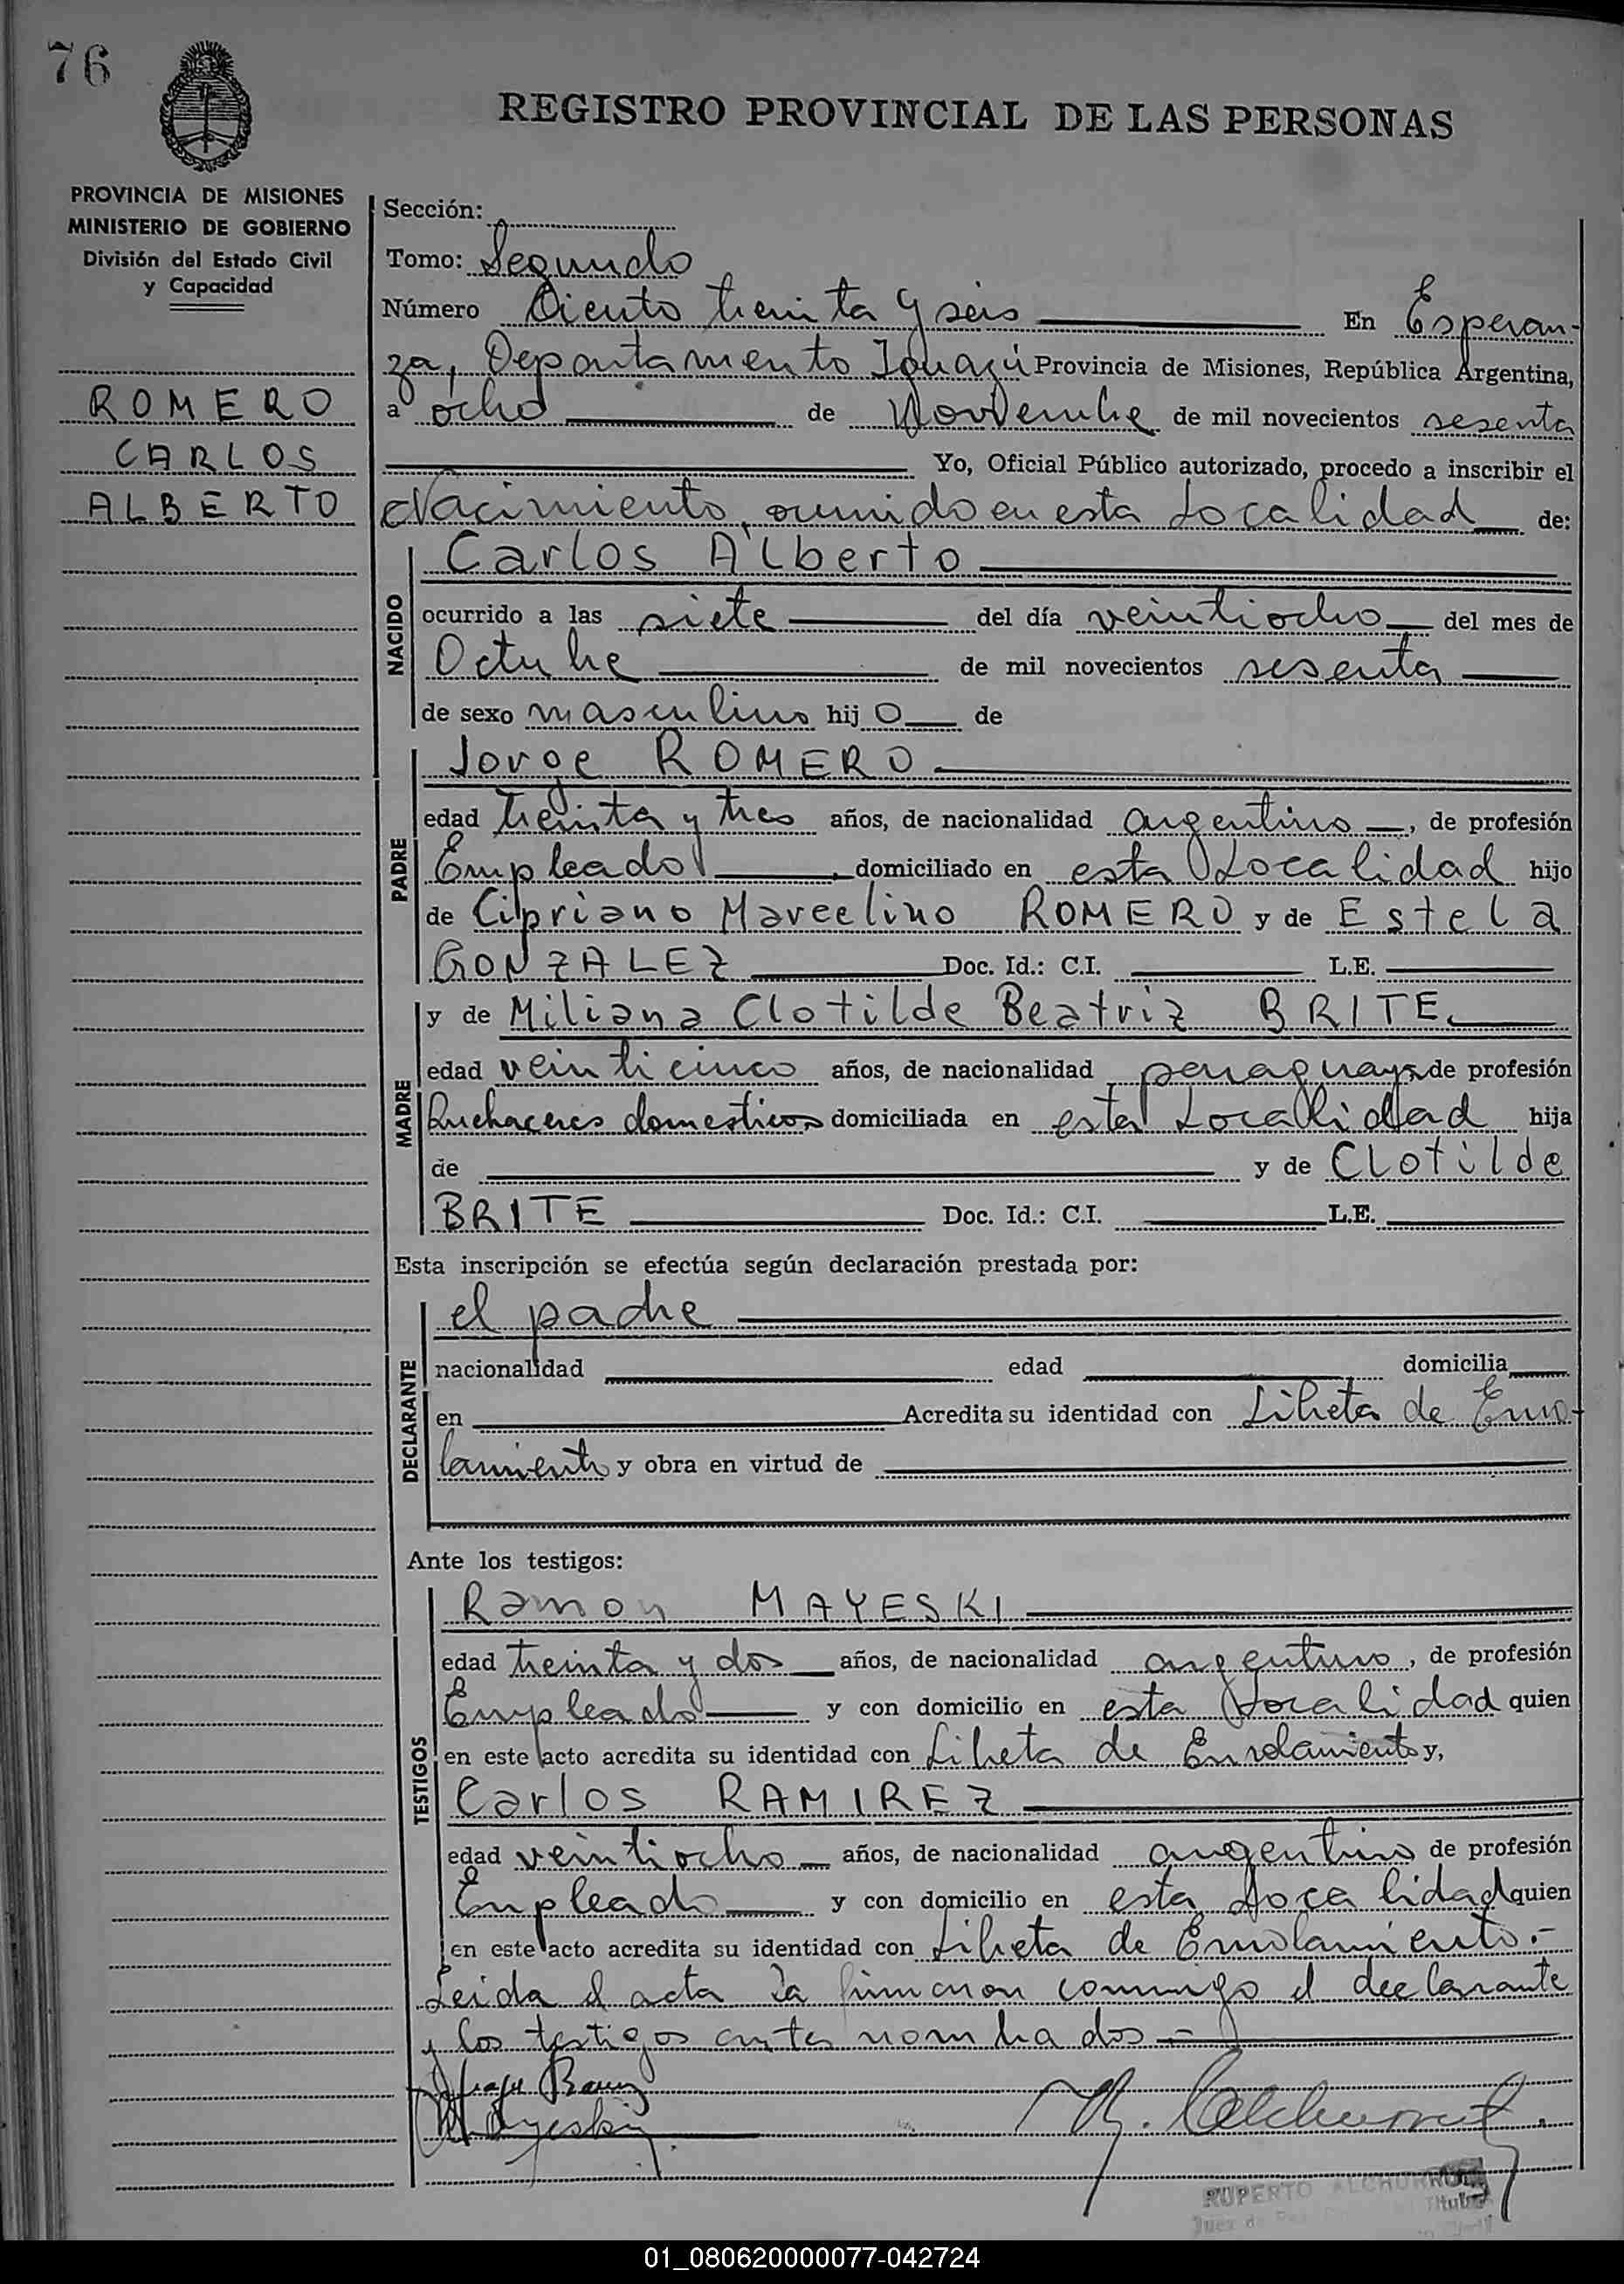 76
REGISTRO PROVINCIAL DE LAS PERSONAS
PROVINCIA DE MISIONES
MINISTERIO DE GOBIERNO
División del Estado Civil
y Capacidad
ROMERO
CARLOS
ALBERTO
Sección:
Tomo: Segundo
Número Ciento treinta y seis En Esperan-
za, Departamento Iguazú Provincia de Misiones, República Argentina,
a ocho de Noviembre de mil novecientos sesenta
Yo, Oficial Público autorizado, procedo a inscribir el
Nacimiento, ocurrido en esta Localidad de:
NACIDO
Carlos Alberto
ocurrido a las siete del día veintiocho del mes de
Octubre de mil novecientos sesenta
de sexo masculino hijo de
PADRE
Jorge ROMERO
edad treinta y tres años, de nacionalidad argentino, de profesión
Empleado domiciliado en esta Localidad hijo
de Cipriano Marcelino ROMERO y de Estela
GONZALEZ Doc. Id.: C.I. L.E.
MADRE
y de Miliana Clotilde Beatriz BRITE
edad veinticinco años, de nacionalidad paraguaya, de profesión
Quehaceres domesticos domiciliada en esta Localidad hija
de y de Clotilde
BRITE Doc. Id.: C.I. L.E.
Esta inscripción se efectúa según declaración prestada por:
DECLARANTE
el padre
nacionalidad edad domicilia
en Acredita su identidad con Libreta de Enro-
lamiento y obra en virtud de
Ante los testigos:
TESTIGOS
Ramon MAYESKI
edad treinta y dos años, de nacionalidad argentino, de profesión
Empleado y con domicilio en esta Localidad quien
en este acto acredita su identidad con Libreta de Enrolamiento y,
Carlos RAMIREZ
edad veintiocho años, de nacionalidad argentino de profesión
Empleado y con domicilio en esta Localidad quien
en este acto acredita su identidad con Libreta de Enrolamiento.-
Leida el acta la firmaron conmigo el declarante
y los testigos antes nombrados =
RUPERTO
01_080620000077-042724